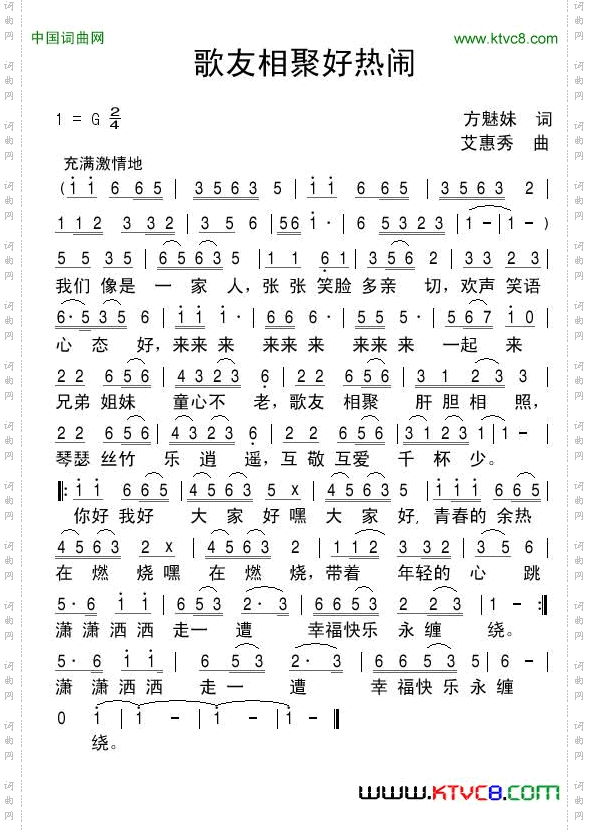 中国词曲网
www.ktvc8.com
歌友相聚好热闹
1 = G 2/4
方魅妹 词
艾惠秀 曲
充满激情地
(i i 6 65 | 3563 5 | i i 6 65 | 3563 2 |
112 332 | 3 5 6 | 561 i· | 6 5323 | i - | i - )
5 5 35 | 65635 | 1 1 61 | 5 653 | 33 23 |
我们 像是 一 家 人,张 张 笑脸 多亲 切,欢声 笑语
6· 535 6 | i i i · | 66 6 · | 55 5 · | 567 i0 |
心 态 好,来来 来 来来 来 来来 来 一起 来
22 656 | 4323 6 | 22 656 | 31 23 |
兄弟 姐妹 童心不 老,歌友 相聚 肝 胆 相 照,
22 656 | 4323 6 | 22 656 | 3123 1 | 1 - |
琴瑟 丝竹 乐 逍 遥,互 敬 互爱 千 杯 少。
i i 665 | 4563 5 x | 4563 5 | i i i 665 |
你好 我好 大 家 好 嘿 大 家 好, 青春的 余热
4563 2 x | 4563 2 | 112 332 |
在 燃 烧 嘿 在 燃 烧,带着 年轻的 心 跳
5·6 i i | 653 2·3 | 6653 2 23 | 1 - :|
潇 潇 洒洒 走一 遭 幸福快乐 永 缠 绕。
5·6 i i | 6 53 | 2·3 | 6653 | 2 23 |
潇 潇 洒洒 走 一 遭 幸 福快 乐 永 缠
0 1 | 1 - | 1 - | 1 - |
绕。
www.KTVC8.com
词曲网